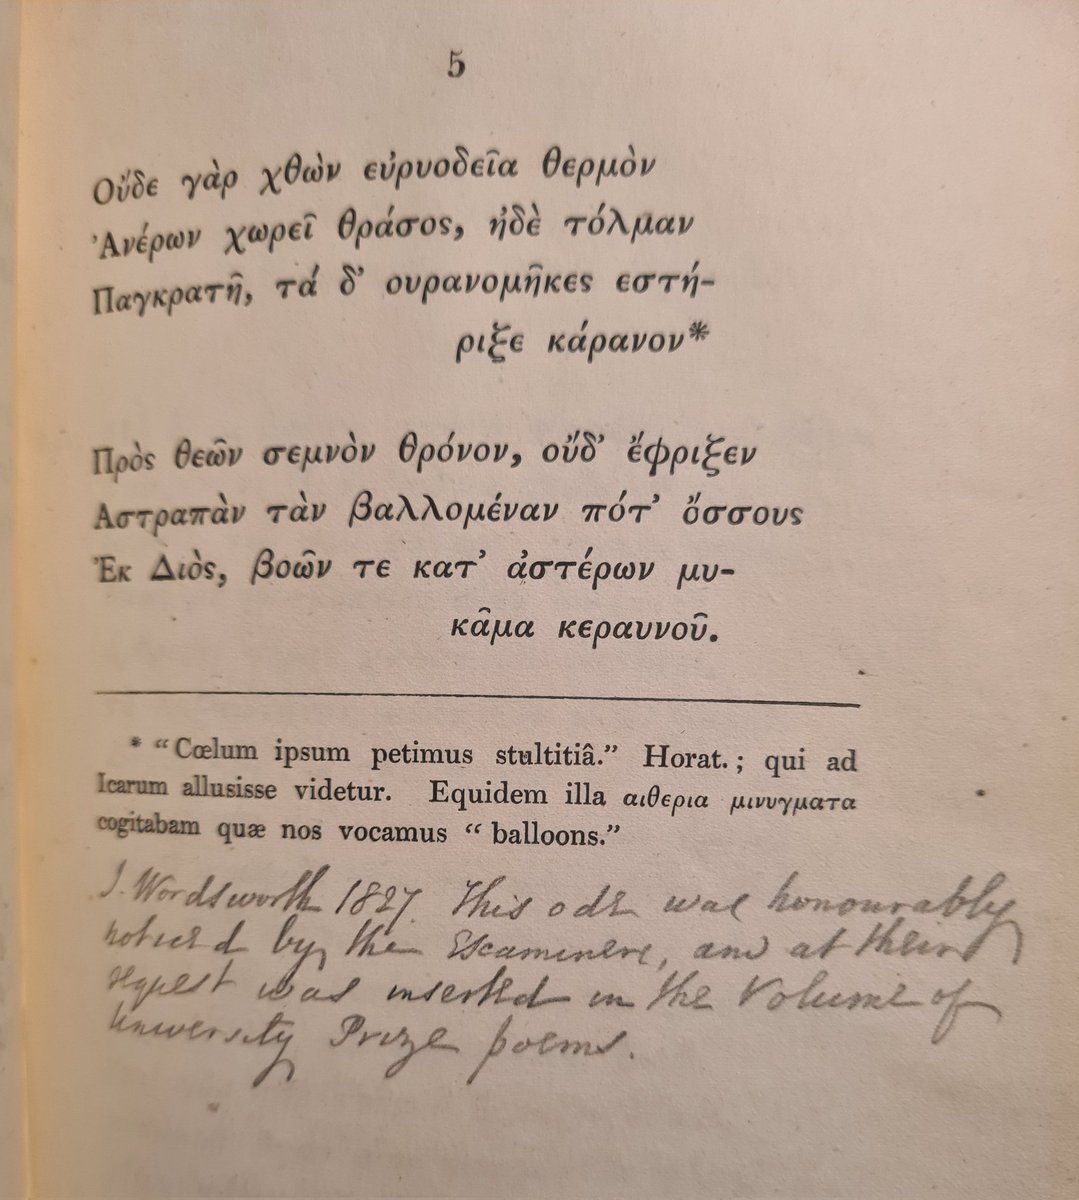 5
Οὔδε γὰρ χθὼν εὐρυοδεῖα θερμὸν
Ἀνέρων χωρεῖ θράσος, ἠδὲ τόλμαν
Παγκρατῆ, τά δ’ ουρανομῆκες εστή-
ριξε κάρανον*
Πρὸς θεῶν σεμνὸν θρόνον, οὔδ’ ἔφριξεν
Αστραπὰν τὰν βαλλομέναν πότ’ ὄσσους
Ἐκ Διὸς, βοῶν τε κατ’ ἀστέρων μυ-
κᾶμα κεραυνοῦ.
* “Cœlum ipsum petimus stultitiâ.” Horat.; qui ad
Icarum allusisse videtur. Equidem illa αιθερια μινυγματα
cogitabam quæ nos vocamus “balloons.”
J. Wordsworth 1827. This ode was honourably
noticed by the Examiners, and at their
request was inserted in the Volume of
University Prize poems.